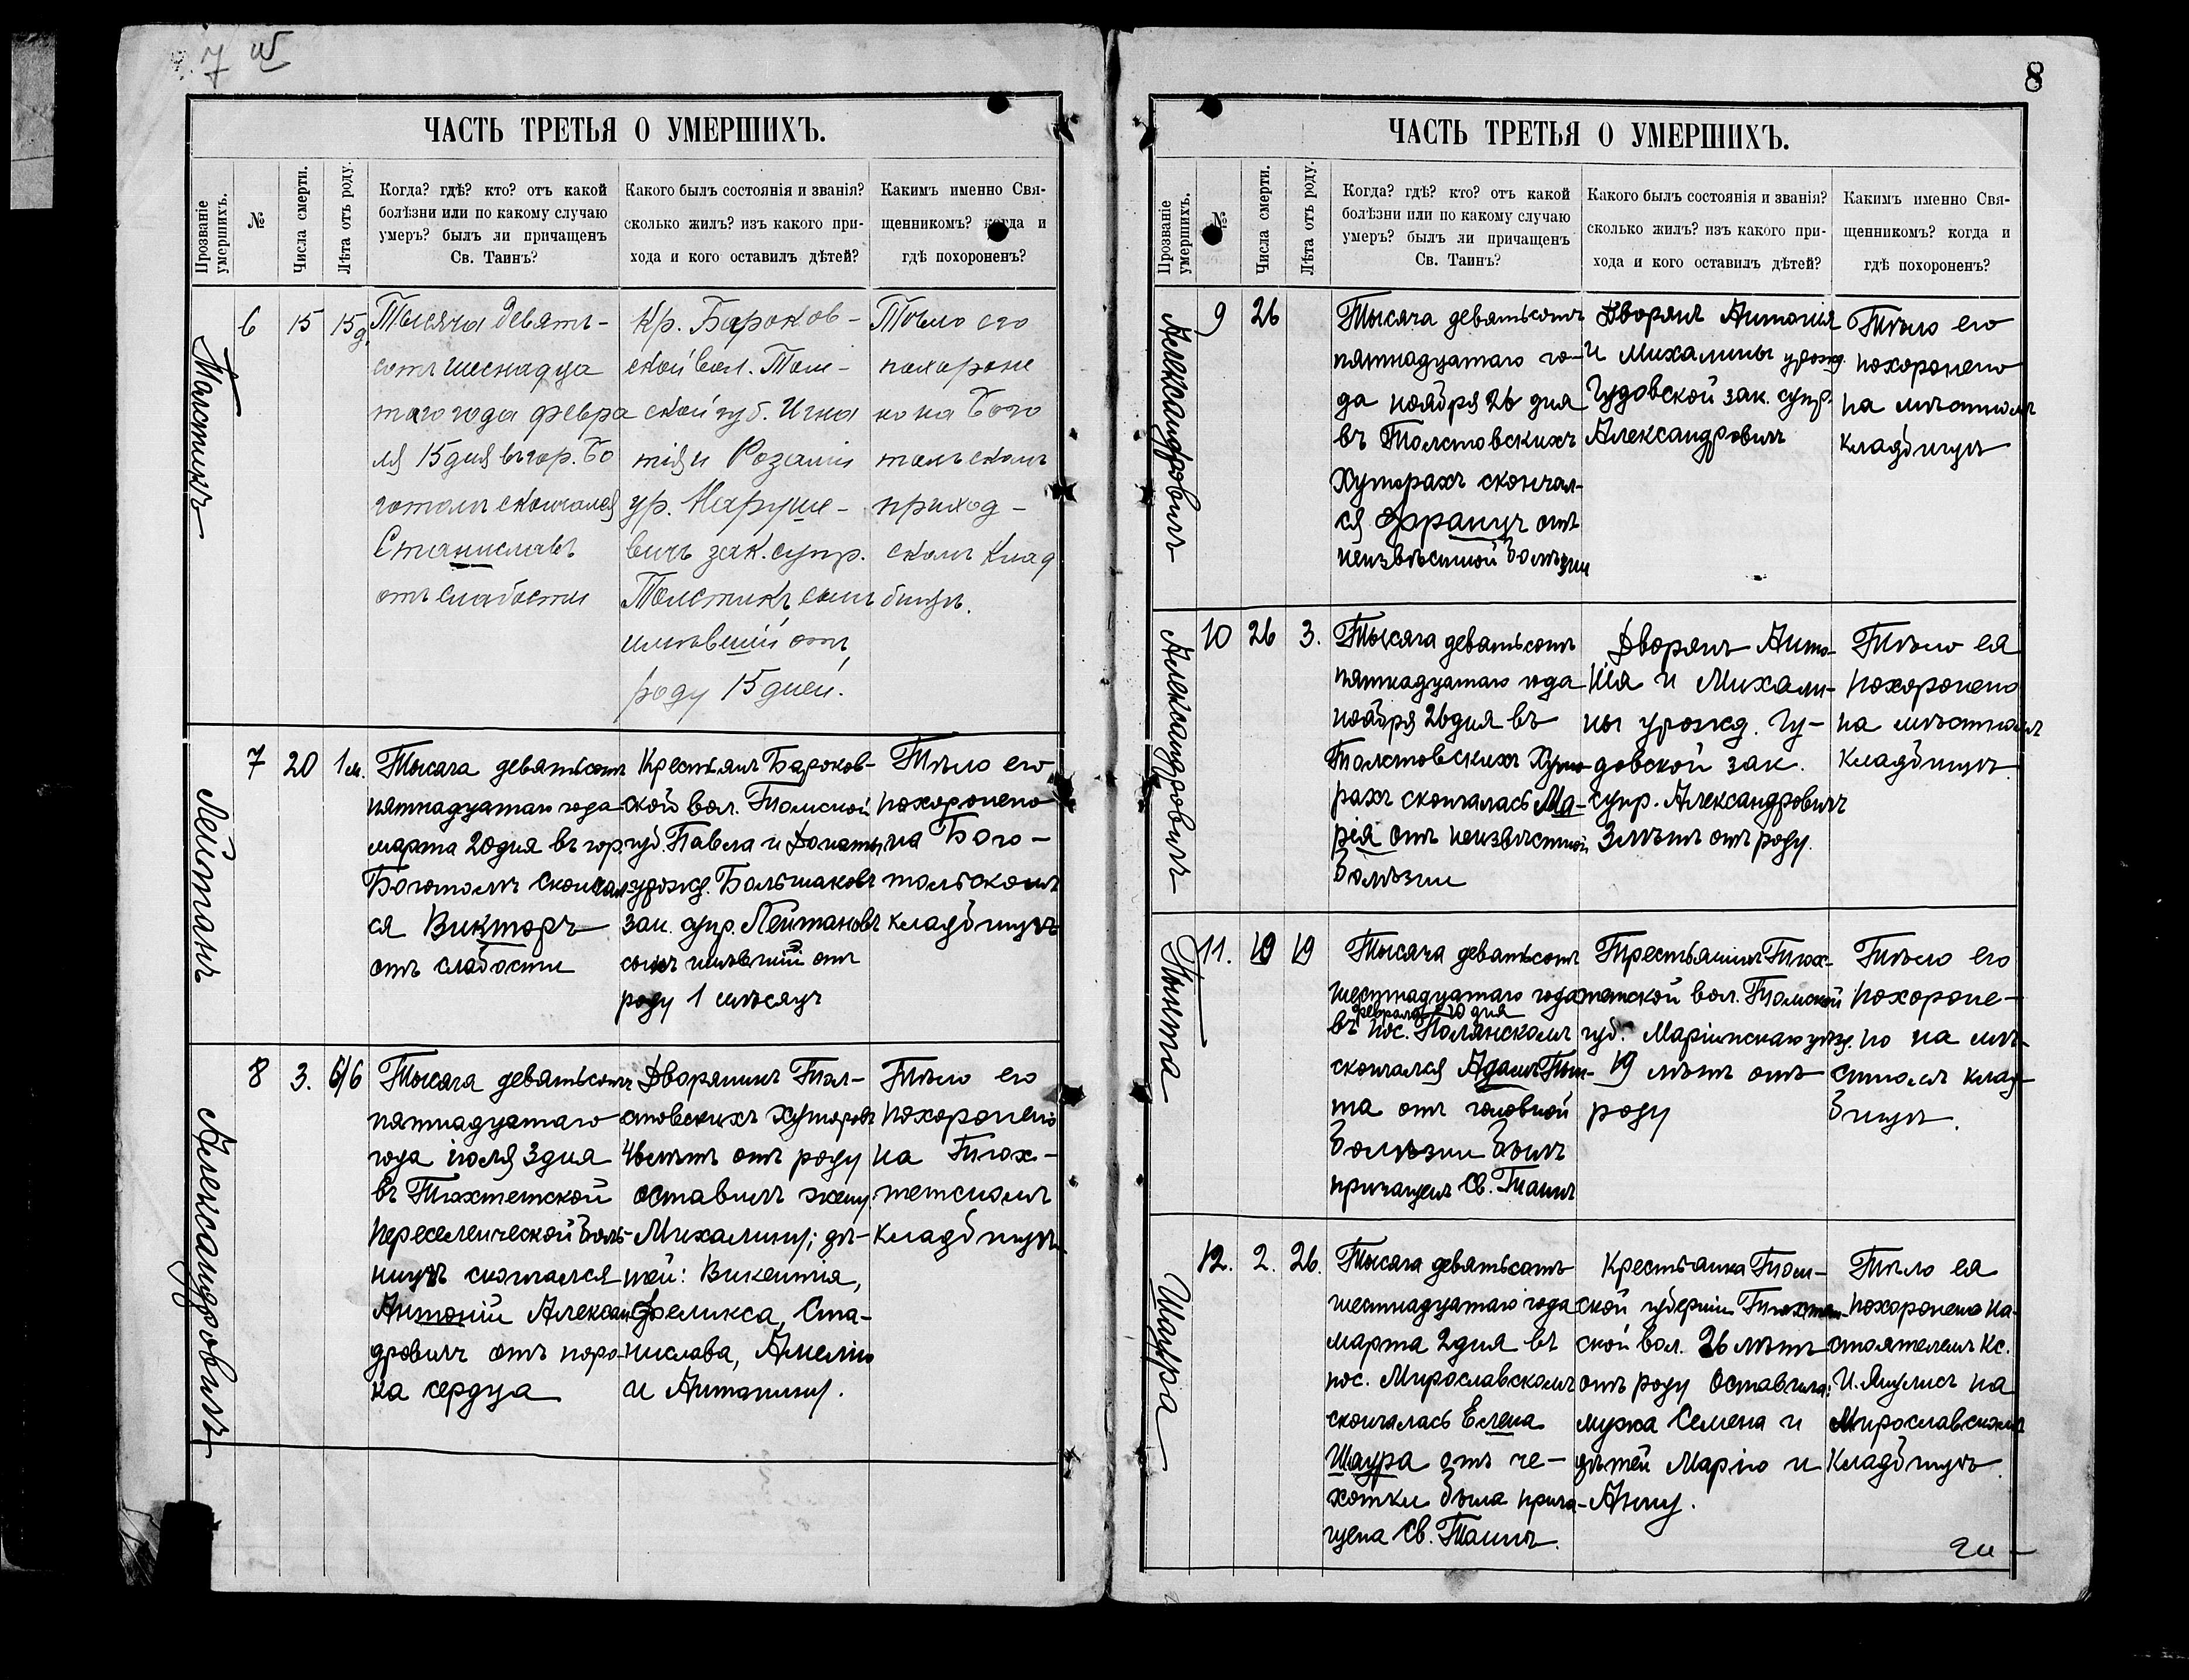 7
8
ЧАСТЬ ТРЕТЬЯ О УМЕРШИХЪ.
Прозваніе умершихъ.
№
Числа смерти.
Лѣта отъ роду.
Когда? гдѣ? кто? отъ какой
болѣзни или по какому случаю
умеръ? былъ ли причащенъ
Св. Таинъ?
Какого былъ состоянія и званія?
сколько жилъ? изъ какого при-
хода и кого оставилъ дѣтей?
Какимъ именно Свя-
щенникомъ? когда и
гдѣ похороненъ?
6
15
15 д.
Тысяча девять-
сотъ шеснадца
таго года февра
ля 15 дня въ гор. Бо
готолѣ скончался
Станиславъ
отъ слабости
Кр. Бароков-
ской вол. Том-
ской губ. Игна
тія и Розаліи
ур. Маруше-
вичъ зак. супр.
Толстикъ, сынъ
имѣвшій отъ
роду 15 дней.
Тѣло его
похороне
но на Бого
тольскомъ
приход-
скомъ клад
бищѣ.
Лейтанъ
7
20
1 м.
Тысяча девятьсотъ
пятнадцатаго года
марта 20 дня въ гор.
Боготолѣ скончал-
ся Викторъ
отъ слабости
Крестьянъ Бароков-
ской вол. Томской
губ. Павла и Донаты
урожд. Большаковъ
зак. супр. Лейтановъ
сынъ имѣвшій отъ
роду 1 мѣсяцъ
Тѣло его
похоронено
на Бого-
тольскомъ
кладбищѣ
Александровичъ
8
3.
6/6
Тысяча девятьсотъ
пятнадцатаго
года іюля 3 дня
въ Тюхтетской
переселенческой боль-
ницѣ скончался
Антоній Алексан-
дровичъ отъ поро-
ка сердца
Дворянинъ Тол-
стовскихъ хуторовъ
46 лѣтъ отъ роду
оставилъ жену:
Михалину; дѣ-
тей: Викентія,
Феликса, Ста-
нислава, Амелію
и Антонину.
Тѣло его
похоронено
на Тюх-
тетскомъ
кладбищѣ
ЧАСТЬ ТРЕТЬЯ О УМЕРШИХЪ.
Прозваніе умершихъ.
№
Числа смерти.
Лѣта отъ роду.
Когда? гдѣ? кто? отъ какой
болѣзни или по какому случаю
умеръ? былъ ли причащенъ
Св. Таинъ?
Какого былъ состоянія и званія?
сколько жилъ? изъ какого при-
хода и кого оставилъ дѣтей?
Какимъ именно Свя-
щенникомъ? когда и
гдѣ похороненъ?
Александровичъ
9
26
Тысяча девятьсотъ
пятнадцатаго го-
да ноября 26 дня
въ Толстовскихъ
Хуторахъ скончал-
ся Францъ отъ
неизвѣстной болѣзни
Дворянъ Антонія
и Михалины урожд.
Гудовской зак. супр.
Александровичъ
Тѣло его
похоронено
на мѣстномъ
кладбищѣ
Александровичъ
10
26
3.
Тысяча девятьсотъ
пятнадцатаго года
ноября 26 дня въ
Толстовскихъ Хуто-
рахъ скончалась Ма-
рія отъ неизвѣстной
болѣзни
Дворянъ Анто-
нія и Михали-
ны урожд. Гу-
довской зак.
супр. Александровичъ
3 лѣтъ отъ роду.
Тѣло ея
похоронено
на мѣстномъ
кладбищѣ.
11.
19
19
Тысяча девятьсотъ
шестнадцатаго года
февраля 20 дня
въ пос. Полянскомъ
скончался Адамъ
та отъ головной
болѣзни былъ
причащенъ Св. Таинъ
Крестьянинъ Тюх-
тетской вол. Томской
губ. Маріинскаго уѣзд.
19 лѣтъ отъ
роду
Тѣло его
похороне-
но на мѣ-
стномъ клад-
бищѣ.
Шаура
12.
2.
26.
Тысяча девятьсотъ
шестнадцатаго года
марта 2 дня въ
пос. Мирославскомъ
скончалась Елена
Шаура отъ ча-
хотки была прича-
щена Св. Таинъ.
Крестьянка Том-
ской губерніи Тюхтет-
ской вол. 26 лѣтъ
отъ роду оставила:
мужа Семена и
дѣтей Марію и
Анну.
Тѣло ея
похоронено на-
стоятелемъ Кс.
на
Мирославскомъ
кладбищѣ.